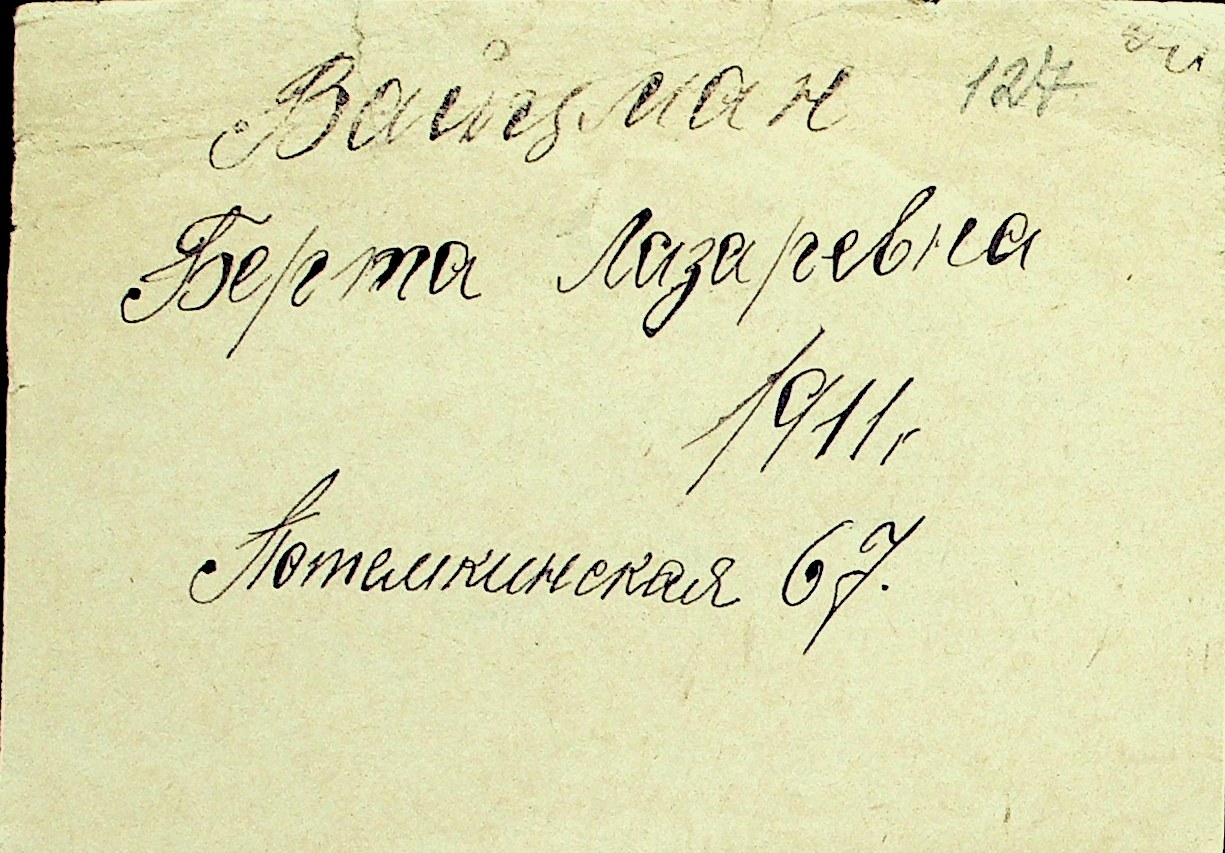 Вайцман 127
Берта Лазаревна
1911г
Потемкинская 67.